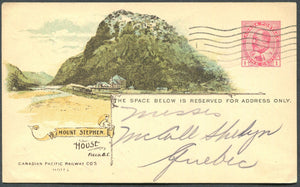 THE SPACE BELOW IS RESERVED FOR ADDRESS ONLY.
MOUNT STEPHEN
HOUSE
FIELD B.C.
CANADIAN PACIFIC RAILWAY CO'S
HOTEL
Misses
McCall
Quebec